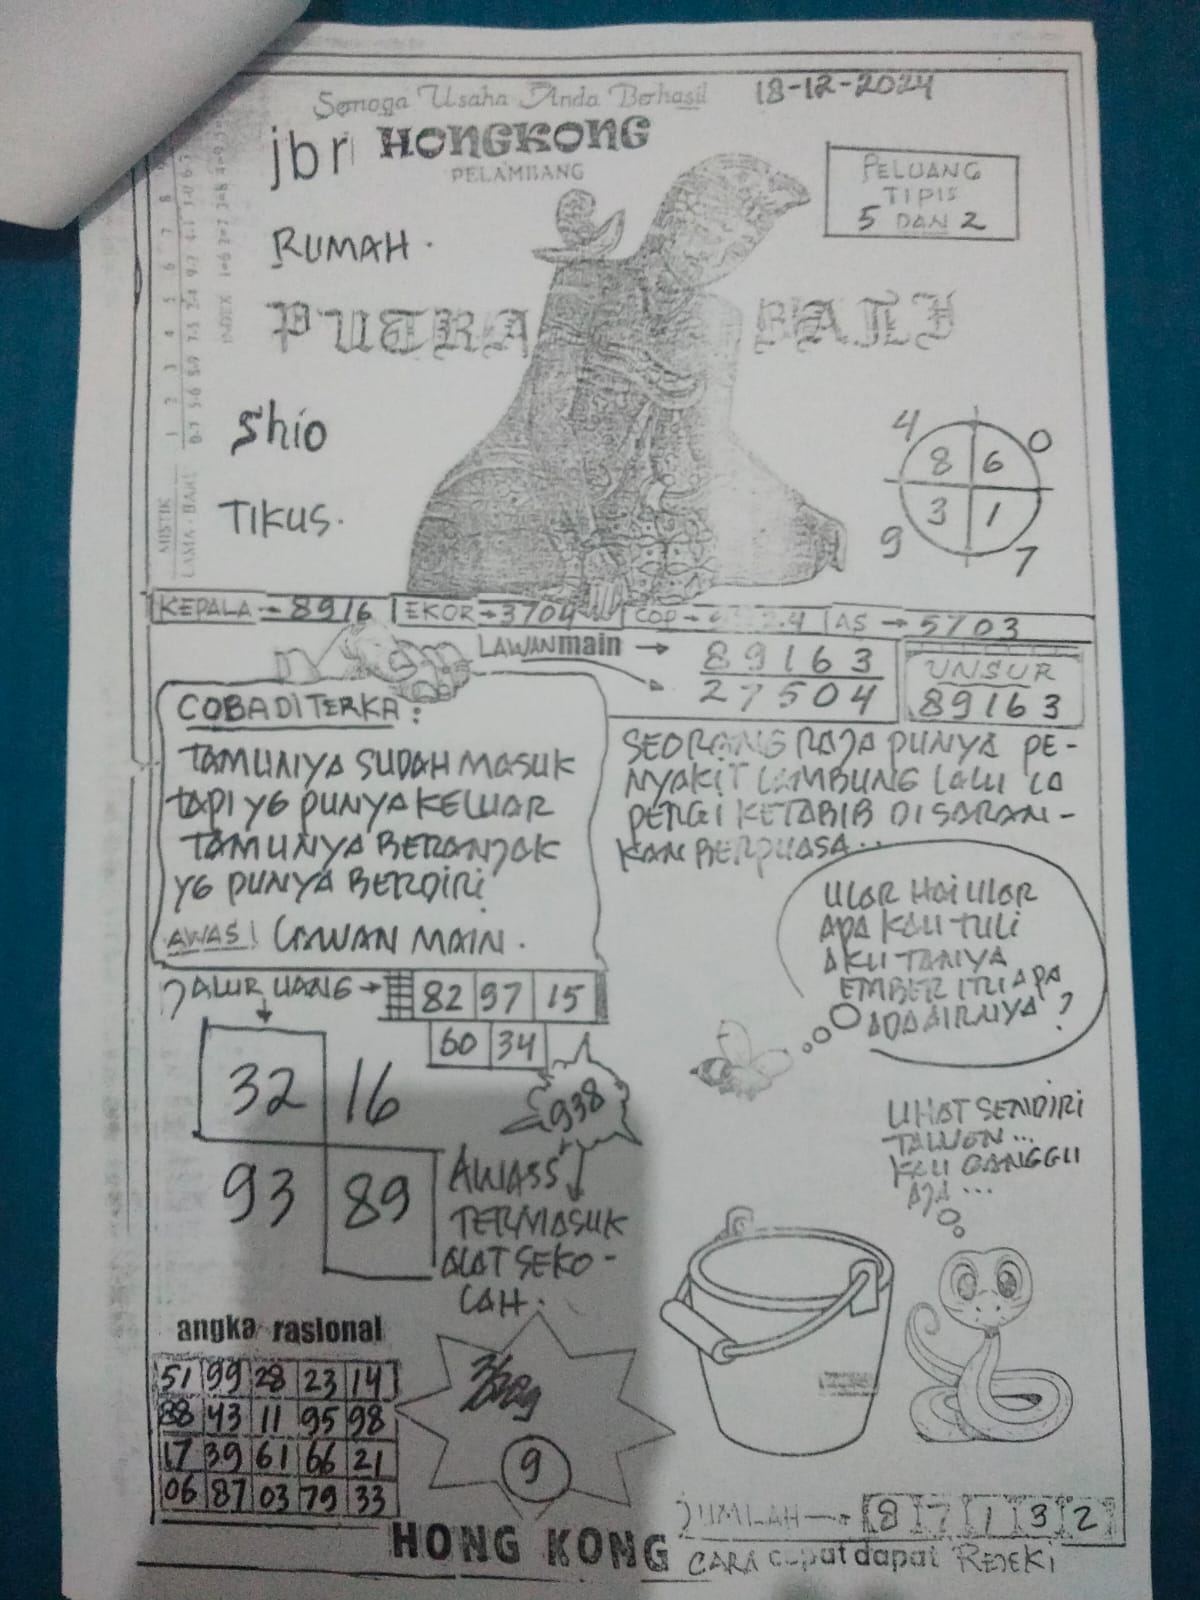 Semoga Usaha Anda Berhasil
18-12-2024
jbr HONGKONG
PELAMBANG
PELUANG
TIPIS
5 DAN 2
RUMAH.
PUTRA BALI
Shio
TIKUS.
MISTIK
LAMA - BARU
INDEX
4 0
8 6
3 1
9 7
KEPALA → 8916
EKOR → 3704
COP →
AS → 5703
LAWAN main →
89163
27504
UNSUR
89163
COBA DITERKA:
TAMUNYA SUDAH MASUK
TAPI YG PUNYA KELUAR
TAMUNYA BERANJAK
YG PUNYA BERDIRI
AWAS! LAWAN MAIN.
SEORANG RAJA PUNYA PE-
NYAKIT LAMBUNG LALU IA
PERGI KETABIB DISARAN-
KAN BERPUASA...
ULAR HAI ULAR
APA KAU TULI
AKU TANYA
EMBER ITU APA
ADA AIRNYA?
JALUR UANG →
82 97 15
60 34
32 16
93 89
938
AWASS
TERMASUK
ALAT SEKO-
LAH.
LIHAT SENDIRI
TAWON...
KAU GANGGU
AJA...
angka rasional
51 99 28 23 14
88 43 11 95 98
17 39 61 66 21
06 87 03 79 33
9
JUMLAH → 8 7 1 3 2
HONG KONG
CARA cepat dapat REJEKI